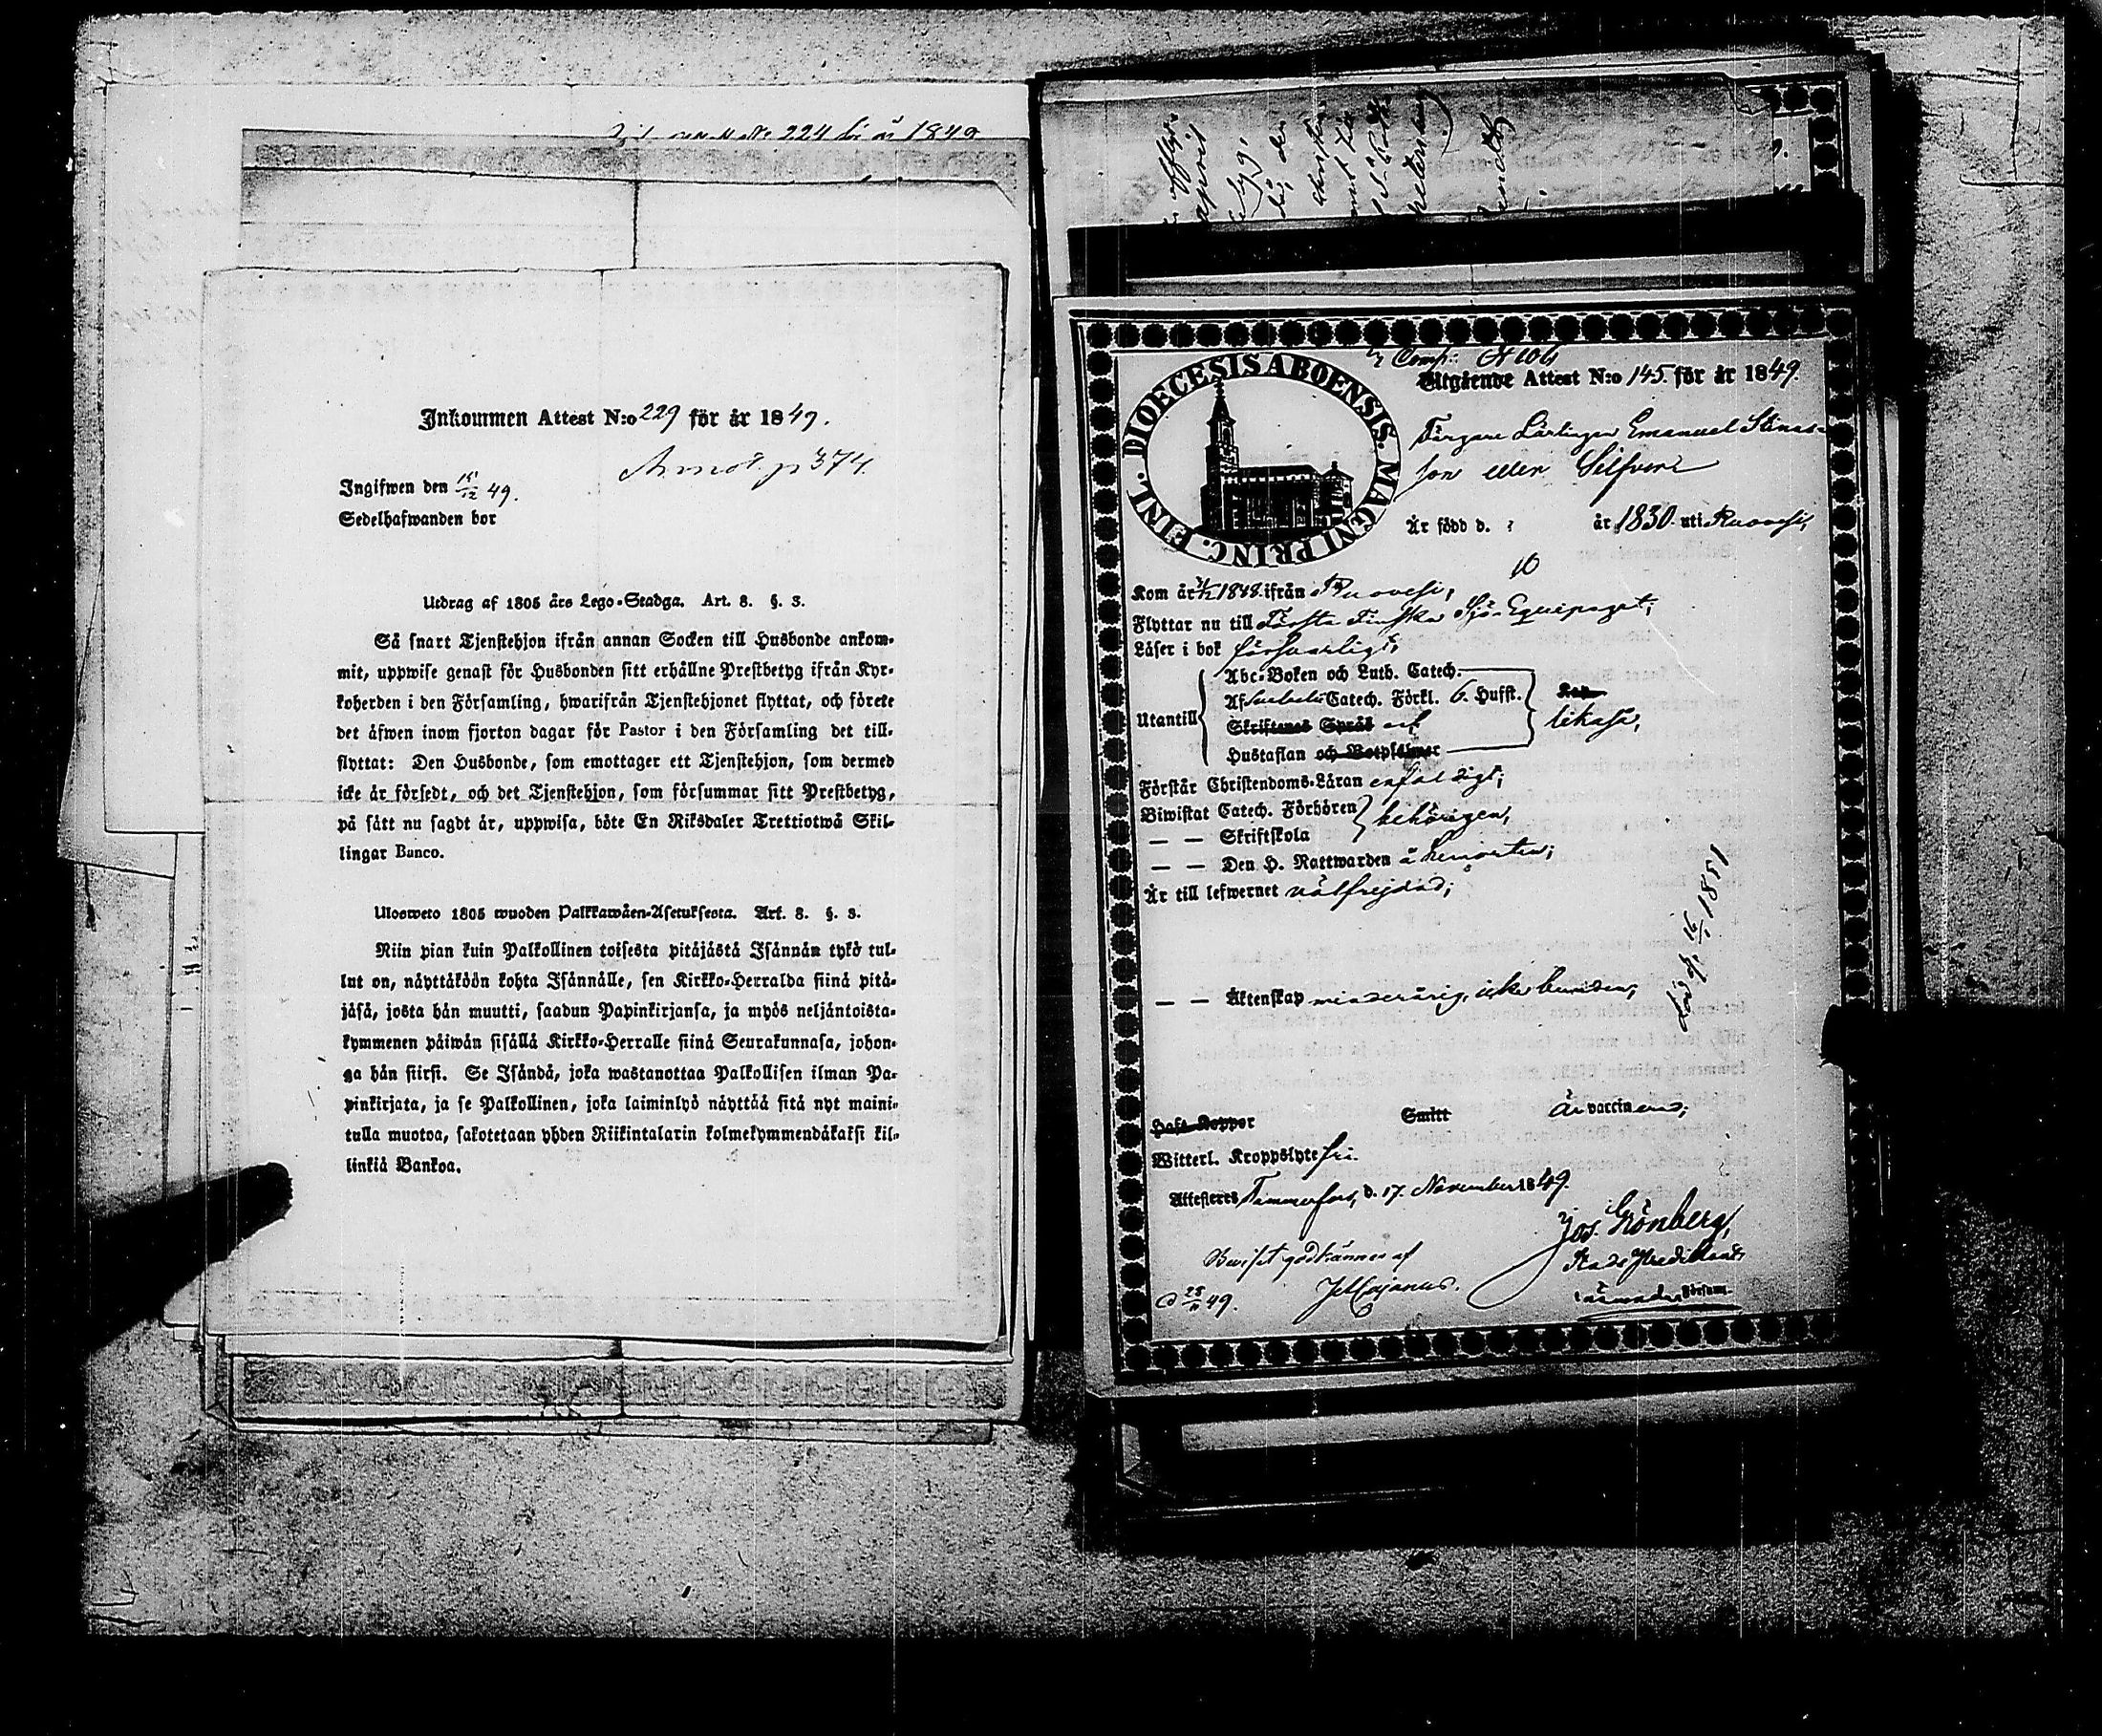 N:o 224 för år 1849
Inkommen Attest N:o 229 för år 1849.
Annot. p 374.
Ingifwen den 15/12 49.
Sedelhafwanden bor
Utdrag af 1805 års Lego-Stadga. Art. 8. §. 3.
Så snart Tjenstehjon ifrån annan Socken till Husbonde ankom-
mit, uppwise genast för Husbonden sitt erhållne Prestbetyg ifrån Kyr-
koherden i den Församling, hwarifrån Tjenstehjonet flyttat, och förete
det äfwen inom fjorton dagar för Pastor i den Församling det till-
flyttat: Den Husbonde, som emottager ett Tjenstehjon, som dermed
icke är försedt, och det Tjenstehjon, som försummar sitt Prestbetyg,
på sått nu sagdt är, uppwisa, böte En Riksdaler Trettiotwå Skil-
lingar Banco.
Ulosweto 1805 wuoden Palkkawäen-Asetuksesta. Art. 8. §. 3.
Niin pian kuin Palkollinen toisesta pitäjästä Isännän tykö tul-
lut on, näyttäköön kohta Isännälle, sen Kirkko-Herralda siinä pitä-
jäsä, josta hän muutti, saadun Papinkirjansa, ja myös neljäntoista-
kymmenen päiwän sisällä Kirkko-Herralle siinä Seurakunnasa, johon-
ga hän siirsi. Se Isändä, joka wastanottaa Palkollisen ilman Pa-
pinkirjata, ja se Palkollinen, joka laiminlyö näyttää sitä nyt maini-
tulla muotoa, sakotetaan yhden Riikintalarin kolmekymmendäkaksi kil-
linkiä Bankoa.
DIOECESIS ABOENSIS. MAGNI PRINC. FINL.
Comp: N 104
Utgående Attest N:o 145. för år 1849.
Färgare Lärlingen Emanuel Stinas-
son eller Silfver
Är född d. ? år 1830. uti Ruovesi,
10
Kom år 1848 ifrån Ruovesi,
Flyttar nu till Första Finska Sjö-Equipaget;
Läser i bok försvarligt,
Abc-Boken och Luth. Catech.
Af Catech. Förkl. 6. Hufst.
Utantill
Skriftenes Språk och
likaså,
Hustaflan och Botpsalmer
Förstår Christendoms-Läran enfaldigt;
Biwistat Catech. Förhören
behörigen,
— — Skriftskola
— — Den H. Nattwarden å hemorten;
Är till lefwernet välfrejdad;
Död d. 16/1 1851
— — Äktenskap minderårig, icke bunden;
Haft Koppor Smitt är vaccinerad;
Witterl. Kroppslyte fri.
Attesteras Tammerfors, d. 17. November 1849.
Jos. Grönberg,
Stads Predikant
Beviset godkännes af
d 28/11 49. Församl.